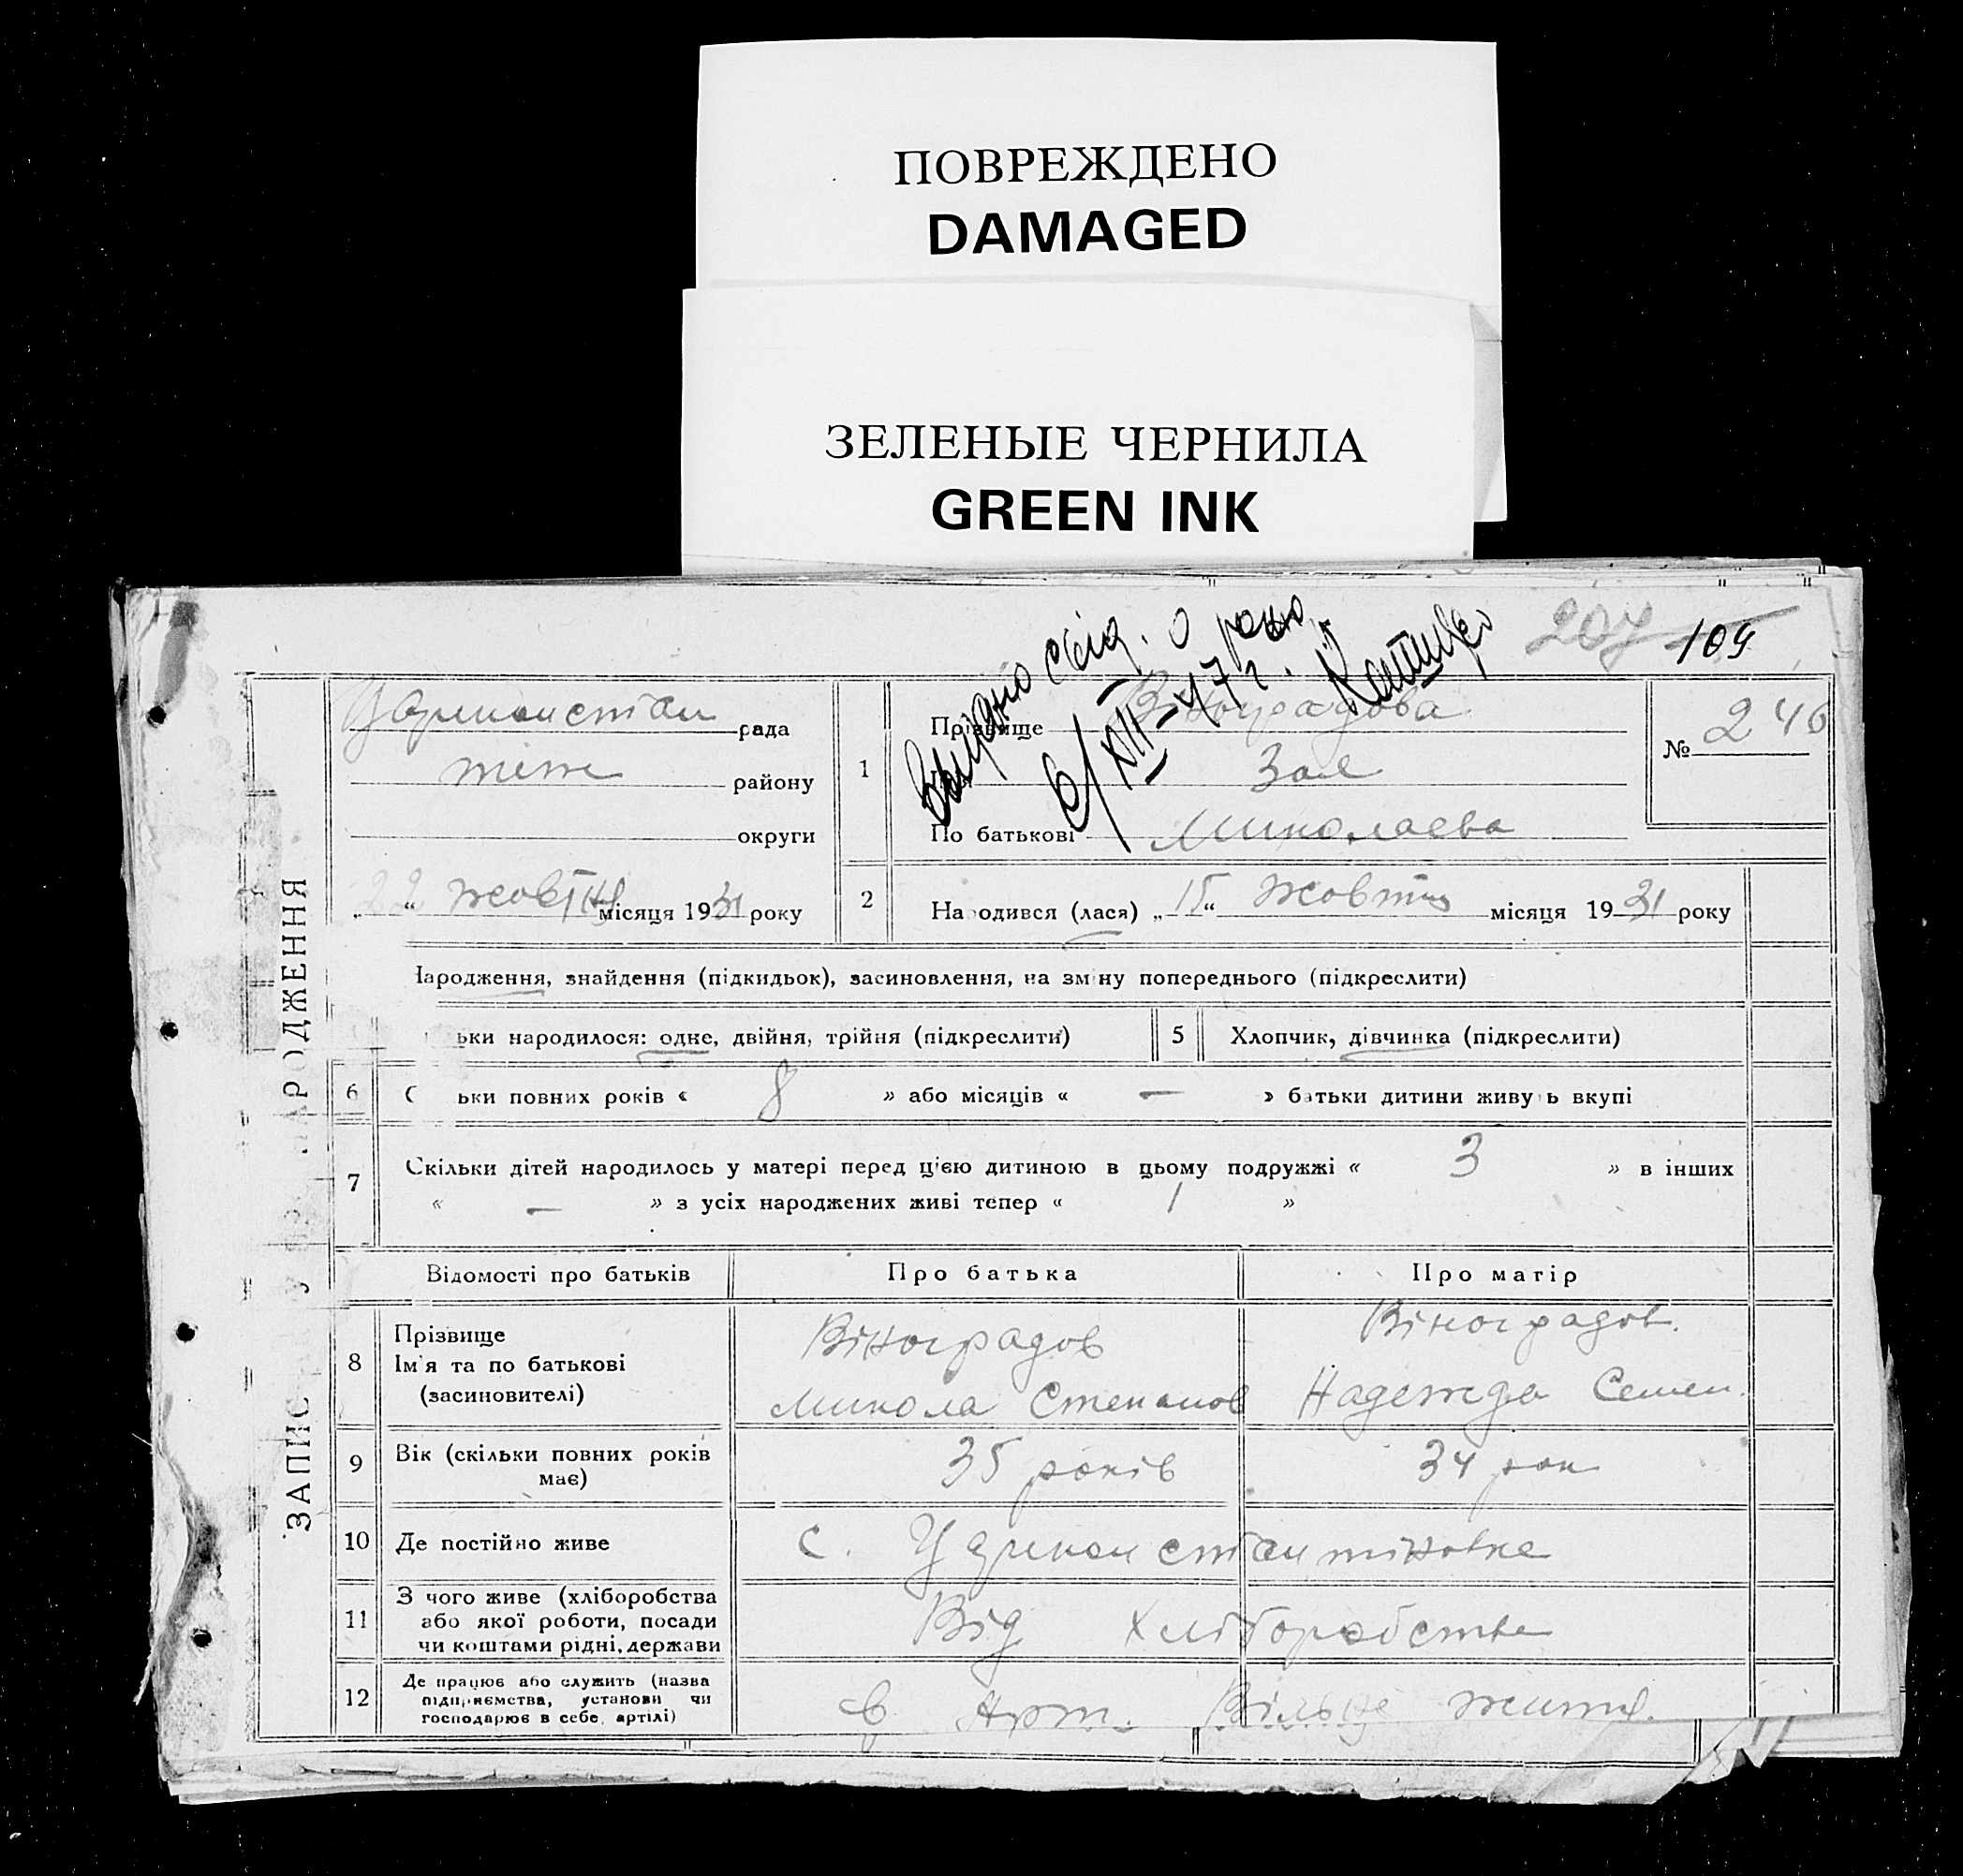 ПОВРЕЖДЕНО
DAMAGED
ЗЕЛЕНЫЕ ЧЕРНИЛА
GREEN INK
207 109
Выдано свід. о рожд.
6/XII-47 г.
ЗАПИС У НАРОДЖЕННЯ
рада
теж району
округи
22 “ жовтня місяця 1931 року
1
Прізвище Віноградова
Зоя
По батькові Миколаева
№ 246
2
Народився (лася) „15“ жовтня місяця 1931 року
Народження, знайдення (підкидьок), засиновлення, на зміну попереднього (підкреслити)
ьки народилося: одне, двійня, трійня (підкреслити)
5 Хлопчик, дівчинка (підкреслити)
6 С ьки повних років « 8 » або місяців « — » батьки дитини живуть вкупі
7 Скільки дітей народилось у матері перед цією дитиною в цьому подружжі « 3 » в інших
« — » з усіх народжених живі тепер « 1 »
Відомості про батьків Про батька Про матір
8 Прізвище
Ім'я та по батькові
(засиновителі)
Віноградов
Микола Степанов
Віноградов.
Надежда Семен.
9 Вік (скільки повних років
має)
35 років 34 рок
10 Де постійно живе с. Цареконстантіновке
11 З чого живе (хліборобства
або якої роботи, посади
чи коштами рідні, держави
Від хліборобства
12 Де працює або служить (назва
підприємства, установи чи
господарює в себе, артілі)
в Арт. Вільне життя.